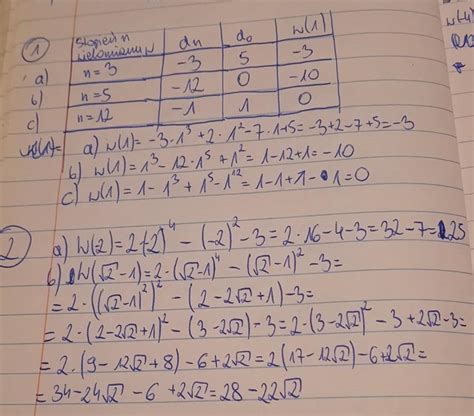 1 Stopień n wielomianu w | an | a0 | w(1)
a) n = 3 | -3 | 5 | -3
b) n = 5 | -12 | 0 | -10
c) n = 12 | -1 | 1 | 0
a) w(1) = -3·1³ + 2·1² - 7·1 + 5 = -3 + 2 - 7 + 5 = -3
b) w(1) = 1³ - 12·1⁵ + 1² = 1 - 12 + 1 = -10
c) w(1) = 1 - 1³ + 1⁵ - 1¹² = 1 - 1 + 1 - 1 = 0
2 a) W(2) = 2(-2)⁴ - (-2)² - 3 = 2·16 - 4 - 3 = 32 - 7 = 25
b) W(√2 - 1) = 2·(√2 - 1)⁴ - (√2 - 1)² - 3 =
= 2·((√2 - 1)²)² - (2 - 2√2 + 1) - 3 =
= 2·(2 - 2√2 + 1)² - (3 - 2√2) - 3 = 2·(3 - 2√2)² - 3 + 2√2 - 3 =
= 2·(9 - 12√2 + 8) - 6 + 2√2 = 2(17 - 12√2) - 6 + 2√2 =
= 34 - 24√2 - 6 + 2√2 = 28 - 22√2